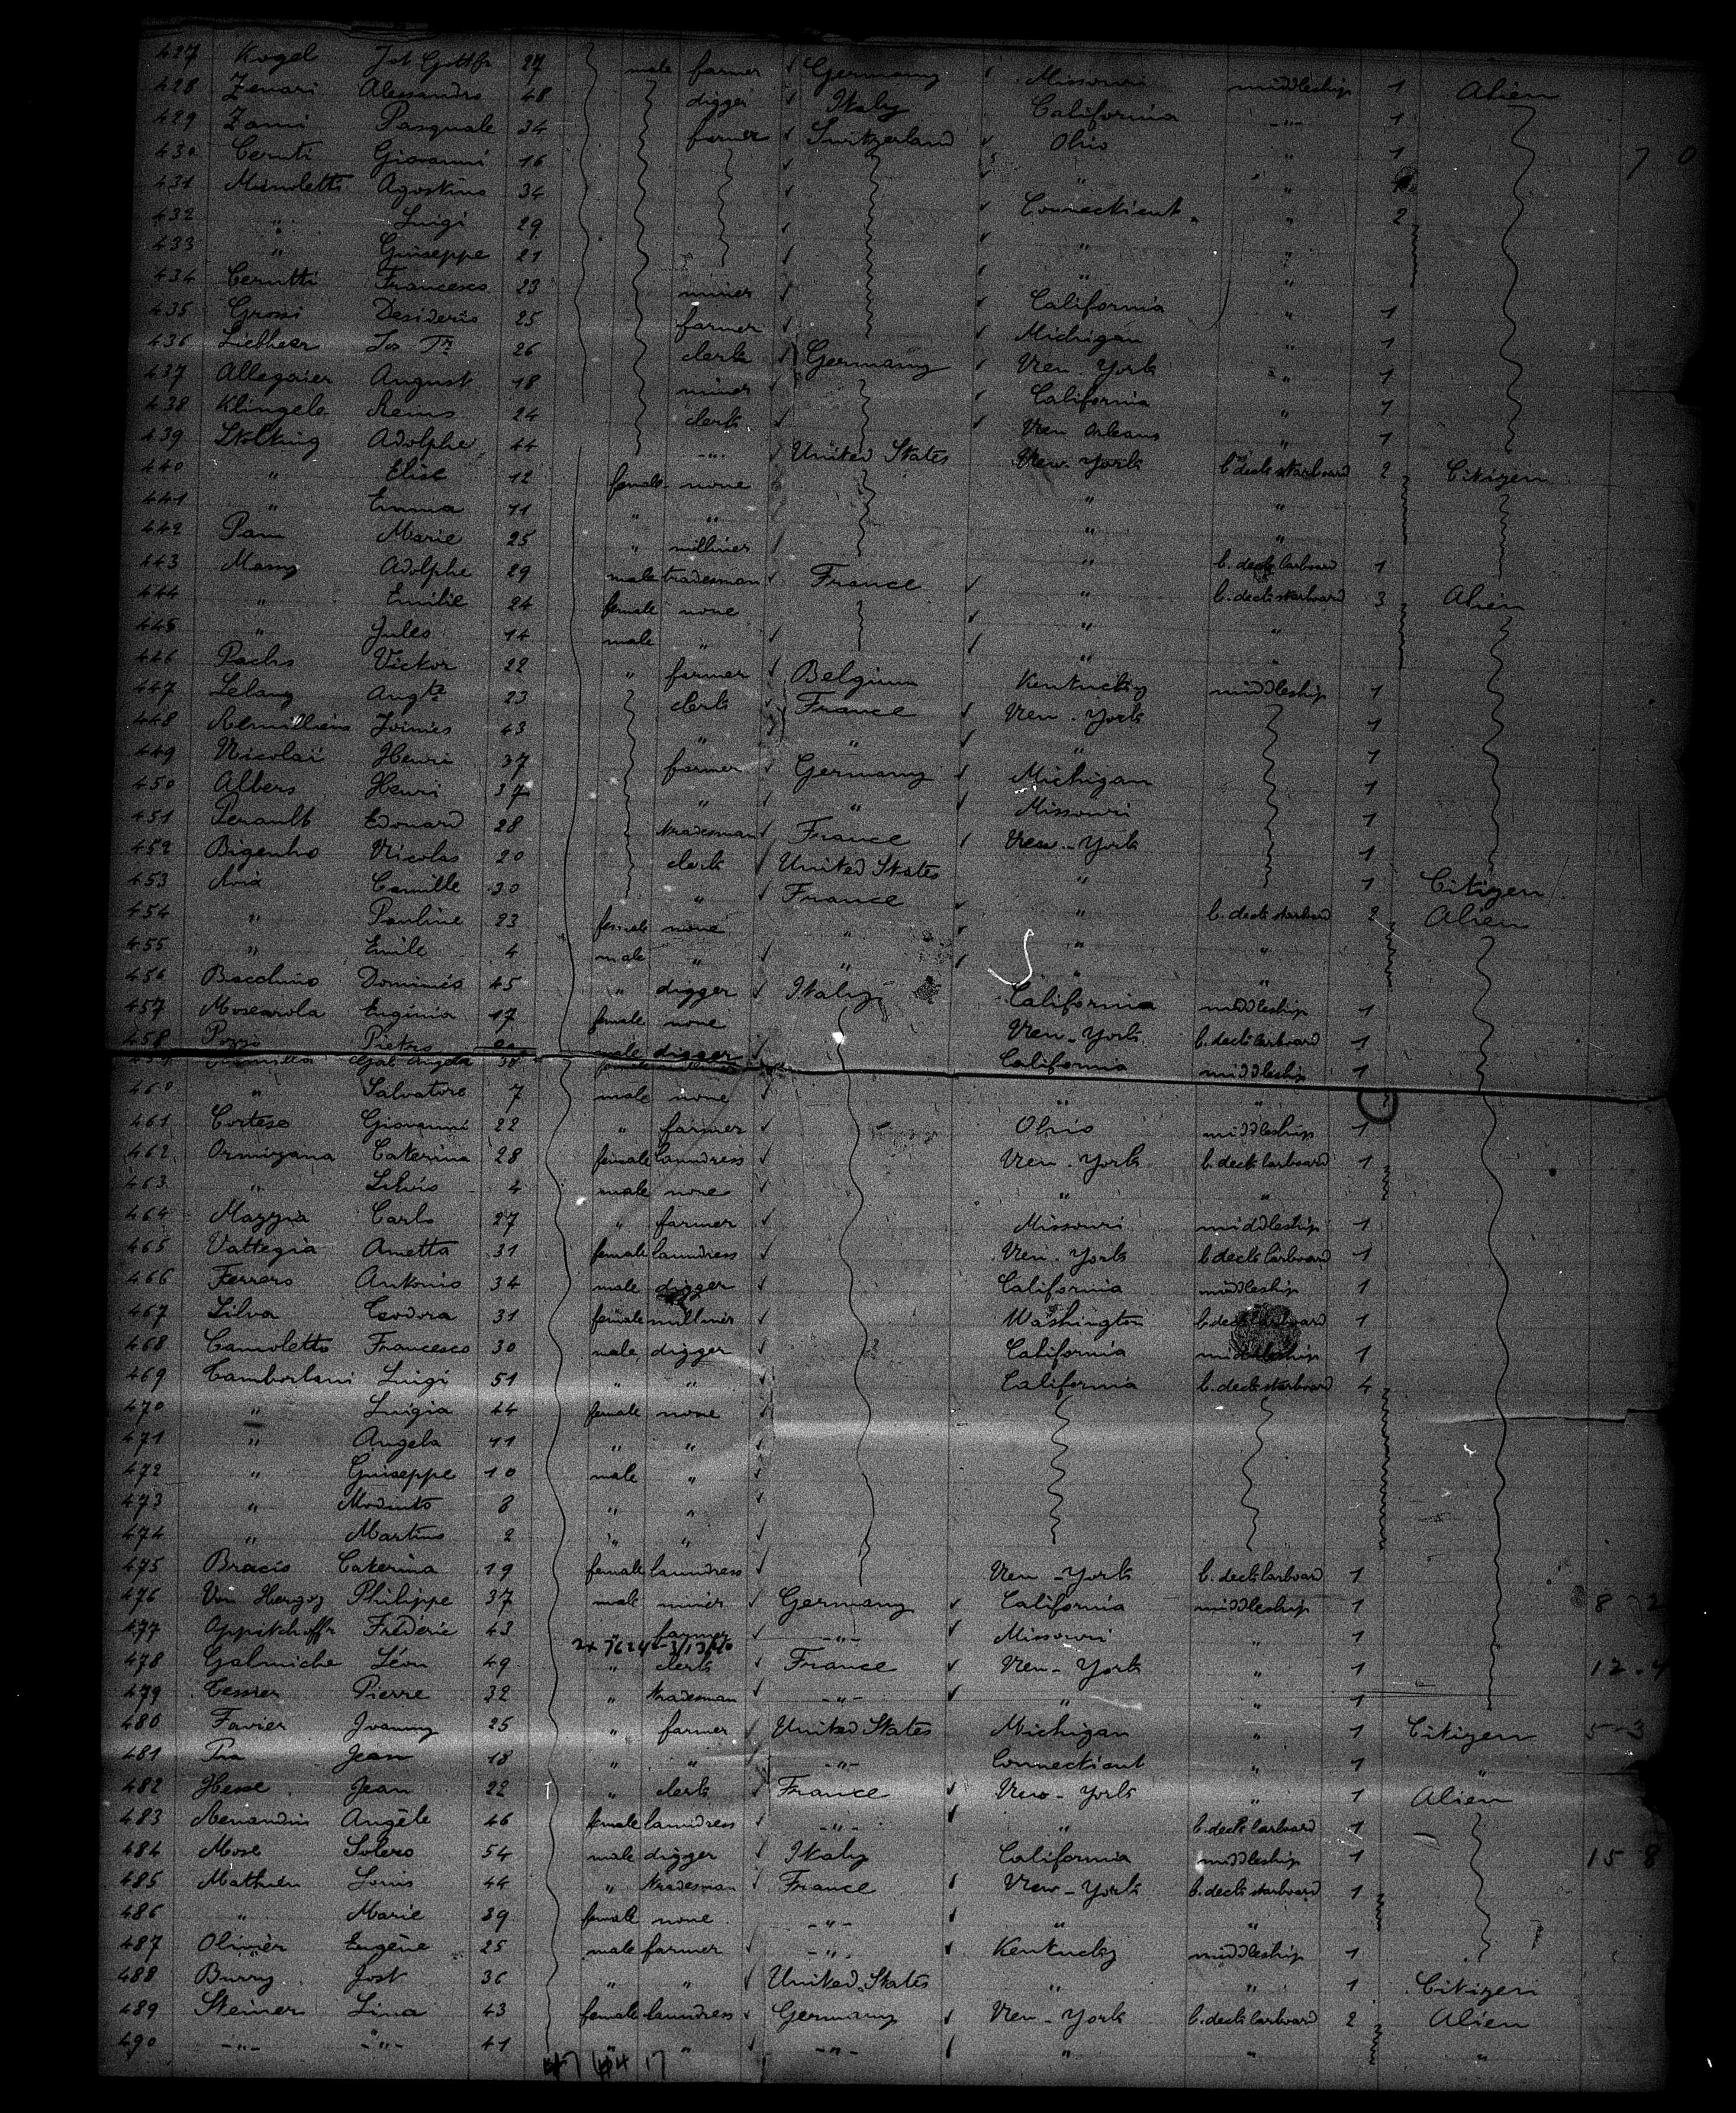 427 Kogel Jos Gottfr 27 male farmer Germany Missouri middleship 1 Alien
428 Zenari Alessandro 48 digger Italy California -"- 1
429 Zanni Pasquale 34 farmer Switzerland Ohio " 1
430 Ceruti Giovanni 16 " "
431 Minoletti Agostino 34 Connecticut " 2
432 " Luigi 29 " "
433 " Giuseppe 21 " "
434 Cerutti Francesco 23 miner California " 1
435 Grossi Desiderio 25 farmer Michigan " 1
436 Liebherr Jos 26 clerk Germany New-York " 1
437 Allegaier August 18 miner California " 1
438 Klingele Remis 24 clerk New Orleans " 1
439 Stolking Adolphe 44 -"- United States New-York b. deck starboard 2 Citizen
440 " Elise 12 female none " "
441 " Emma 11 " " " "
442 Marie 25 " milliner " b. deck larboard 1
443 Mamy Adolphe 29 male tradesman France " b. deck starboard 3 Alien
444 " Emilie 24 female none " "
445 " Jules 14 male " " "
446 Pachs Victor 22 " farmer Belgium Kentucky middleship 1
447 Lelang Augte 23 clerk France New-York 1
448 43 " " " 1
449 Nicolai Henri 37 farmer Germany Michigan 1
450 Albers Henri 37 " " Missouri 1
451 Perault Edouard 28 tradesman France New-York 1
452 Bigenho Nicolas 20 clerk United States " 1 Citizen
453 Camille 30 " France " b. deck starboard 2 Alien
454 " Pauline 23 female none " " "
455 " Emile 4 male " " " "
456 Bacchino Dominico 45 " digger Italy California middleship 1
457 Moscariola Eugenia 17 female none New-York b. deck larboard 1
458 Pozzo Pietro male digger California middleship 1
460 " Salvatore 7 male none " "
461 Cortese Giovanni 22 " farmer Ohio middleship 1
462 Ormizana Caterina 28 female laundress New-York b. deck larboard 1
463 " Silvio 4 male none " "
464 Mazzia Carlo 27 " farmer Missouri middleship 1
465 Vattegia Ametta 31 female laundress New-York b. deck larboard 1
466 Ferrero Antonio 34 male digger California middleship 1
467 Silva Teodora 31 female milliner Washington b. deck larboard 1
468 Camoletto Francesco 30 male digger California middleship 1
469 Tamborlani Luigi 51 " " California b. deck starboard 4
470 " Luigia 44 female none
471 " Angela 11 " "
472 " Giuseppe 10 male "
473 " Modesto 8 " "
474 " Martino 2 " "
475 Bracio Caterina 19 female laundress New-York b. deck larboard 1
476 Von Hergoz Philippe 37 male miner Germany California middleship 1
477 Frédéric 43 " farmer -"- Missouri " 1
478 Galmiche Léon 49 " clerk France New-York " 1
479 Tessier Pierre 32 " tradesman -"- " " 1
480 Favier Joanny 25 " farmer United States Michigan " 1 Citizen 5-3
481 Pra Jean 18 " " -"- Connecticut " 1 "
482 Hesse Jean 22 " clerk France New-York " 1 Alien
483 Angèle 46 female laundress -"- " b. deck larboard 1
484 Mose Solero 54 male digger Italy California middleship 1 15 8
485 Mathieu Louis 44 " tradesman France New-York b. deck starboard 1
486 " Marie 39 female none -"- " "
487 Olivier Eugène 25 male farmer -"- Kentucky middleship 1
488 Burry Jost 36 " " United States " " 1 Citizen
489 Steiner Lina 43 female laundress Germany New-York b. deck larboard 2 Alien
490 -"- -"- 41 " " -"- " " "